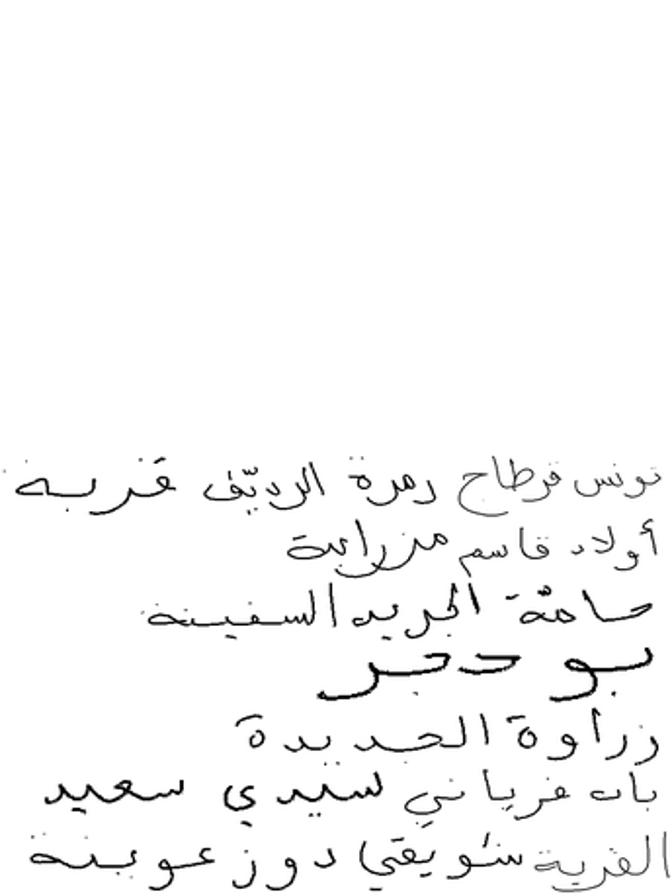 تونس قرطاج رمرة الرديّف قربة
أولاد قاسم مزراية
حامّة الجريد السفينة
بو حجر
زراوة الحديدة
باب فرياني سيدي سعيد
القرية شويقي دوز عوينة